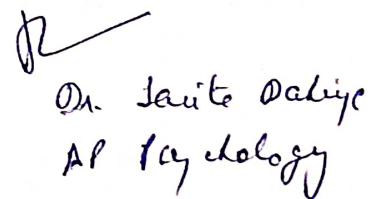 Dr. Savita Dahiya
AP Psychology